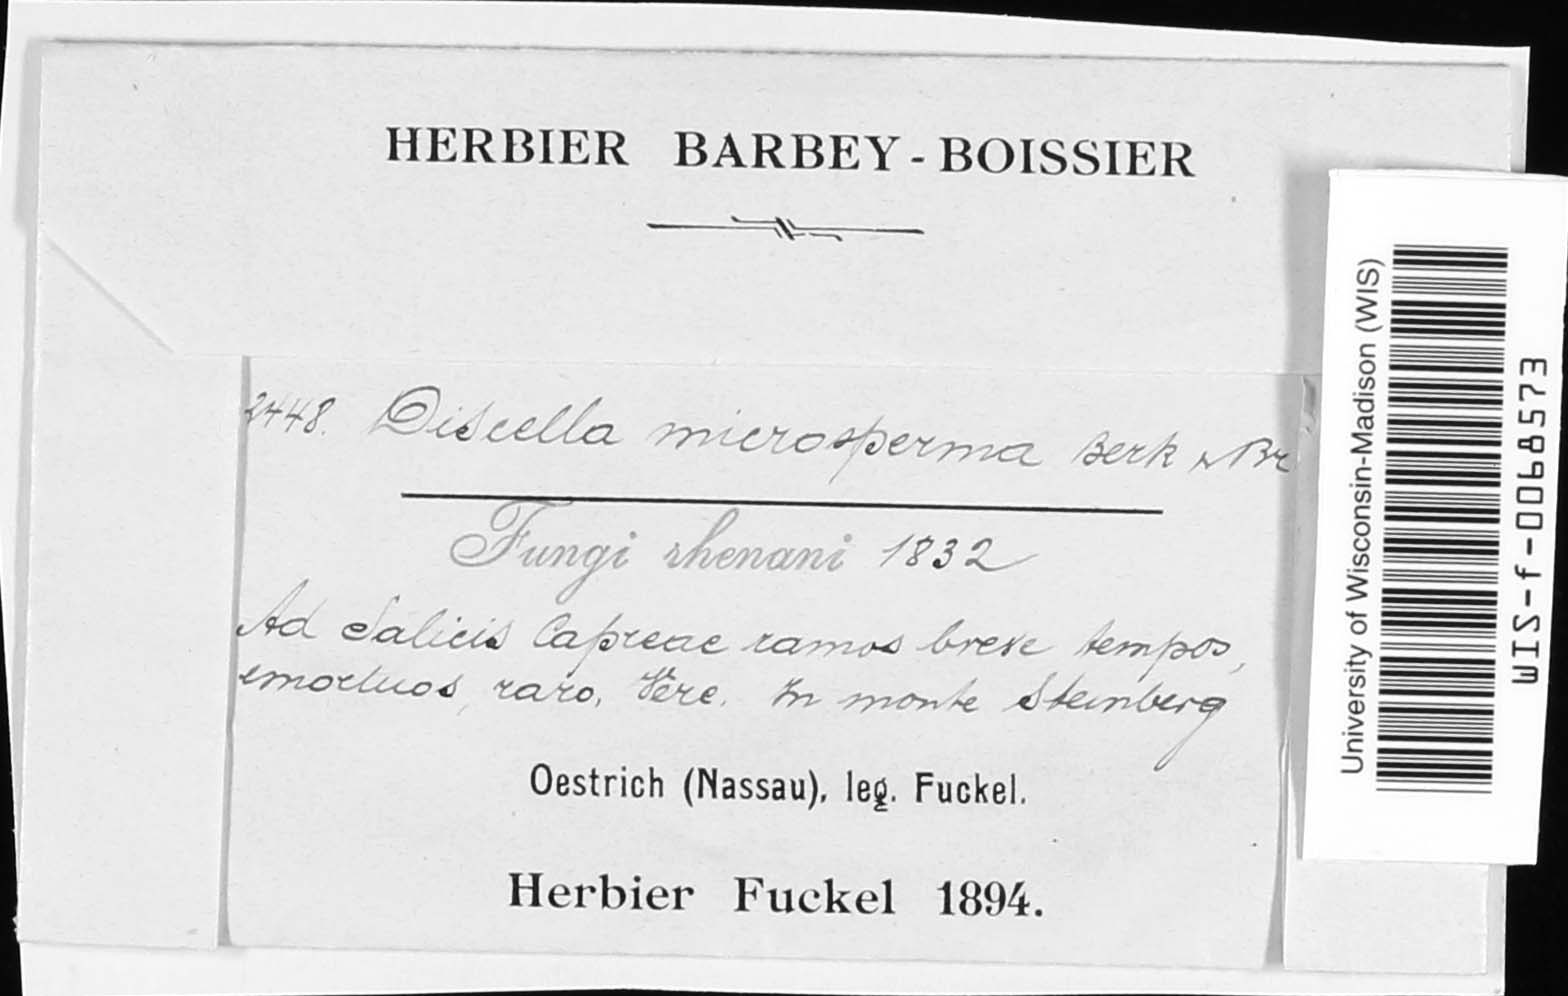 HERBIER BARBEY-BOISSIER
2448. Discella microsperma Berk & Br
Fungi rhenani 1832
Ad Salicis Capreae ramos breve tempos,
emortuos, raro, Vere. In monte Steinberg
Oestrich (Nassau), leg. Fuckel.
Herbier Fuckel 1894.
University of Wisconsin-Madison (WIS)
WIS-f-0068573